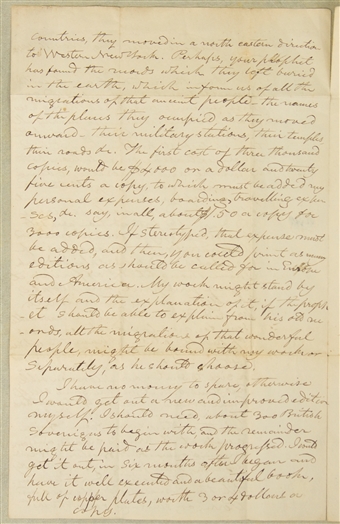 Countries, they moved in a north eastern direction
to Western New York. Perhaps, your prophet
has found the records which they left buried
in the earth, which inform us of all the
migrations of that ancient people—the names
of the places they occupied as they moved
onward—their military stations, their temples
their roads &c. The first cost of three thousand
copies, would be $4000 or a dollar and twenty
five cents a copy, to which must be added my
personal expenses, boarding, travelling expen-
-ses, &c. say, in all, about 1,50 a copy for
3000 copies. If sterotyped, that expense must
be added, and then, you could print as many
editions as should be called for in Europe
and America. My work might stand by
itself and the explanation of it, if the proph-
-et should be able to explain from his old rec-
-ords, all the migrations of that wonderful
people, might be bound with my work or
separately, as he should choose.
I have no money to spare, otherwise
I would get out a new and improved edition
myself. I should need, about 300 British
Sovereigns to begin with and the remainder
might be paid as the work progressed. I could
get it out, in six months after I began and
have it well executed and a beautiful book,
full of copper plates, worth 3 or 4 dollars a
copy.